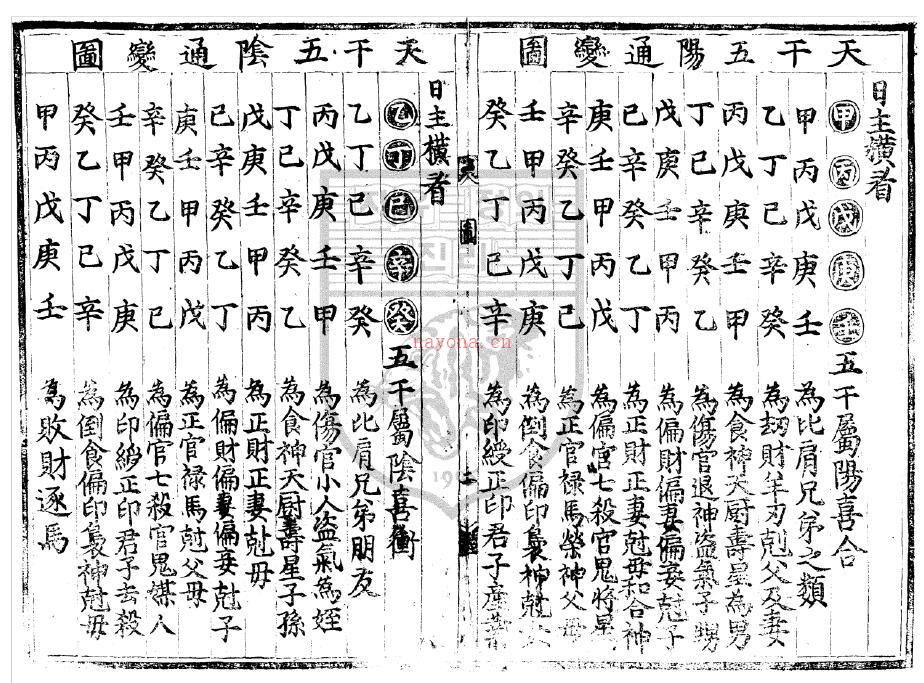 天干五陽通變圖
日主橫看
甲丙戊庚壬五干屬陽喜合
甲丙戊庚壬為比肩兄弟之類
乙丁己辛癸為刼財羊刃尅父及妻
丙戊庚壬甲為食神天厨壽星為男
丁己辛癸乙為傷官退神盜氣子甥
戊庚壬甲丙為偏財偏妻偏妾尅子
己辛癸乙丁為正財正妻尅母和合神
庚壬甲丙戊為偏官七殺官鬼將星
辛癸乙丁己為正官祿馬榮神父母
壬甲丙戊庚為倒食偏印梟神尅
癸乙丁己辛為印綬正印君子產
圖
天干五陰通變圖
日主橫看
乙丁己辛癸五干屬陰喜衝
乙丁己辛癸為比肩兄弟朋友
丙戊庚壬甲為傷官小人盜氣為姪
丁己辛癸乙為食神天厨壽星子孫
戊庚壬甲丙為正財正妻尅母
己辛癸乙丁為偏財偏妻偏妾尅子
庚壬甲丙戊為正官祿馬尅父母
辛癸乙丁己為偏官七殺官鬼媒人
壬甲丙戊庚為印綬正印君子去殺
癸乙丁己辛為倒食偏印梟神尅母
甲丙戊庚壬為敗財逐馬
nayona.cn